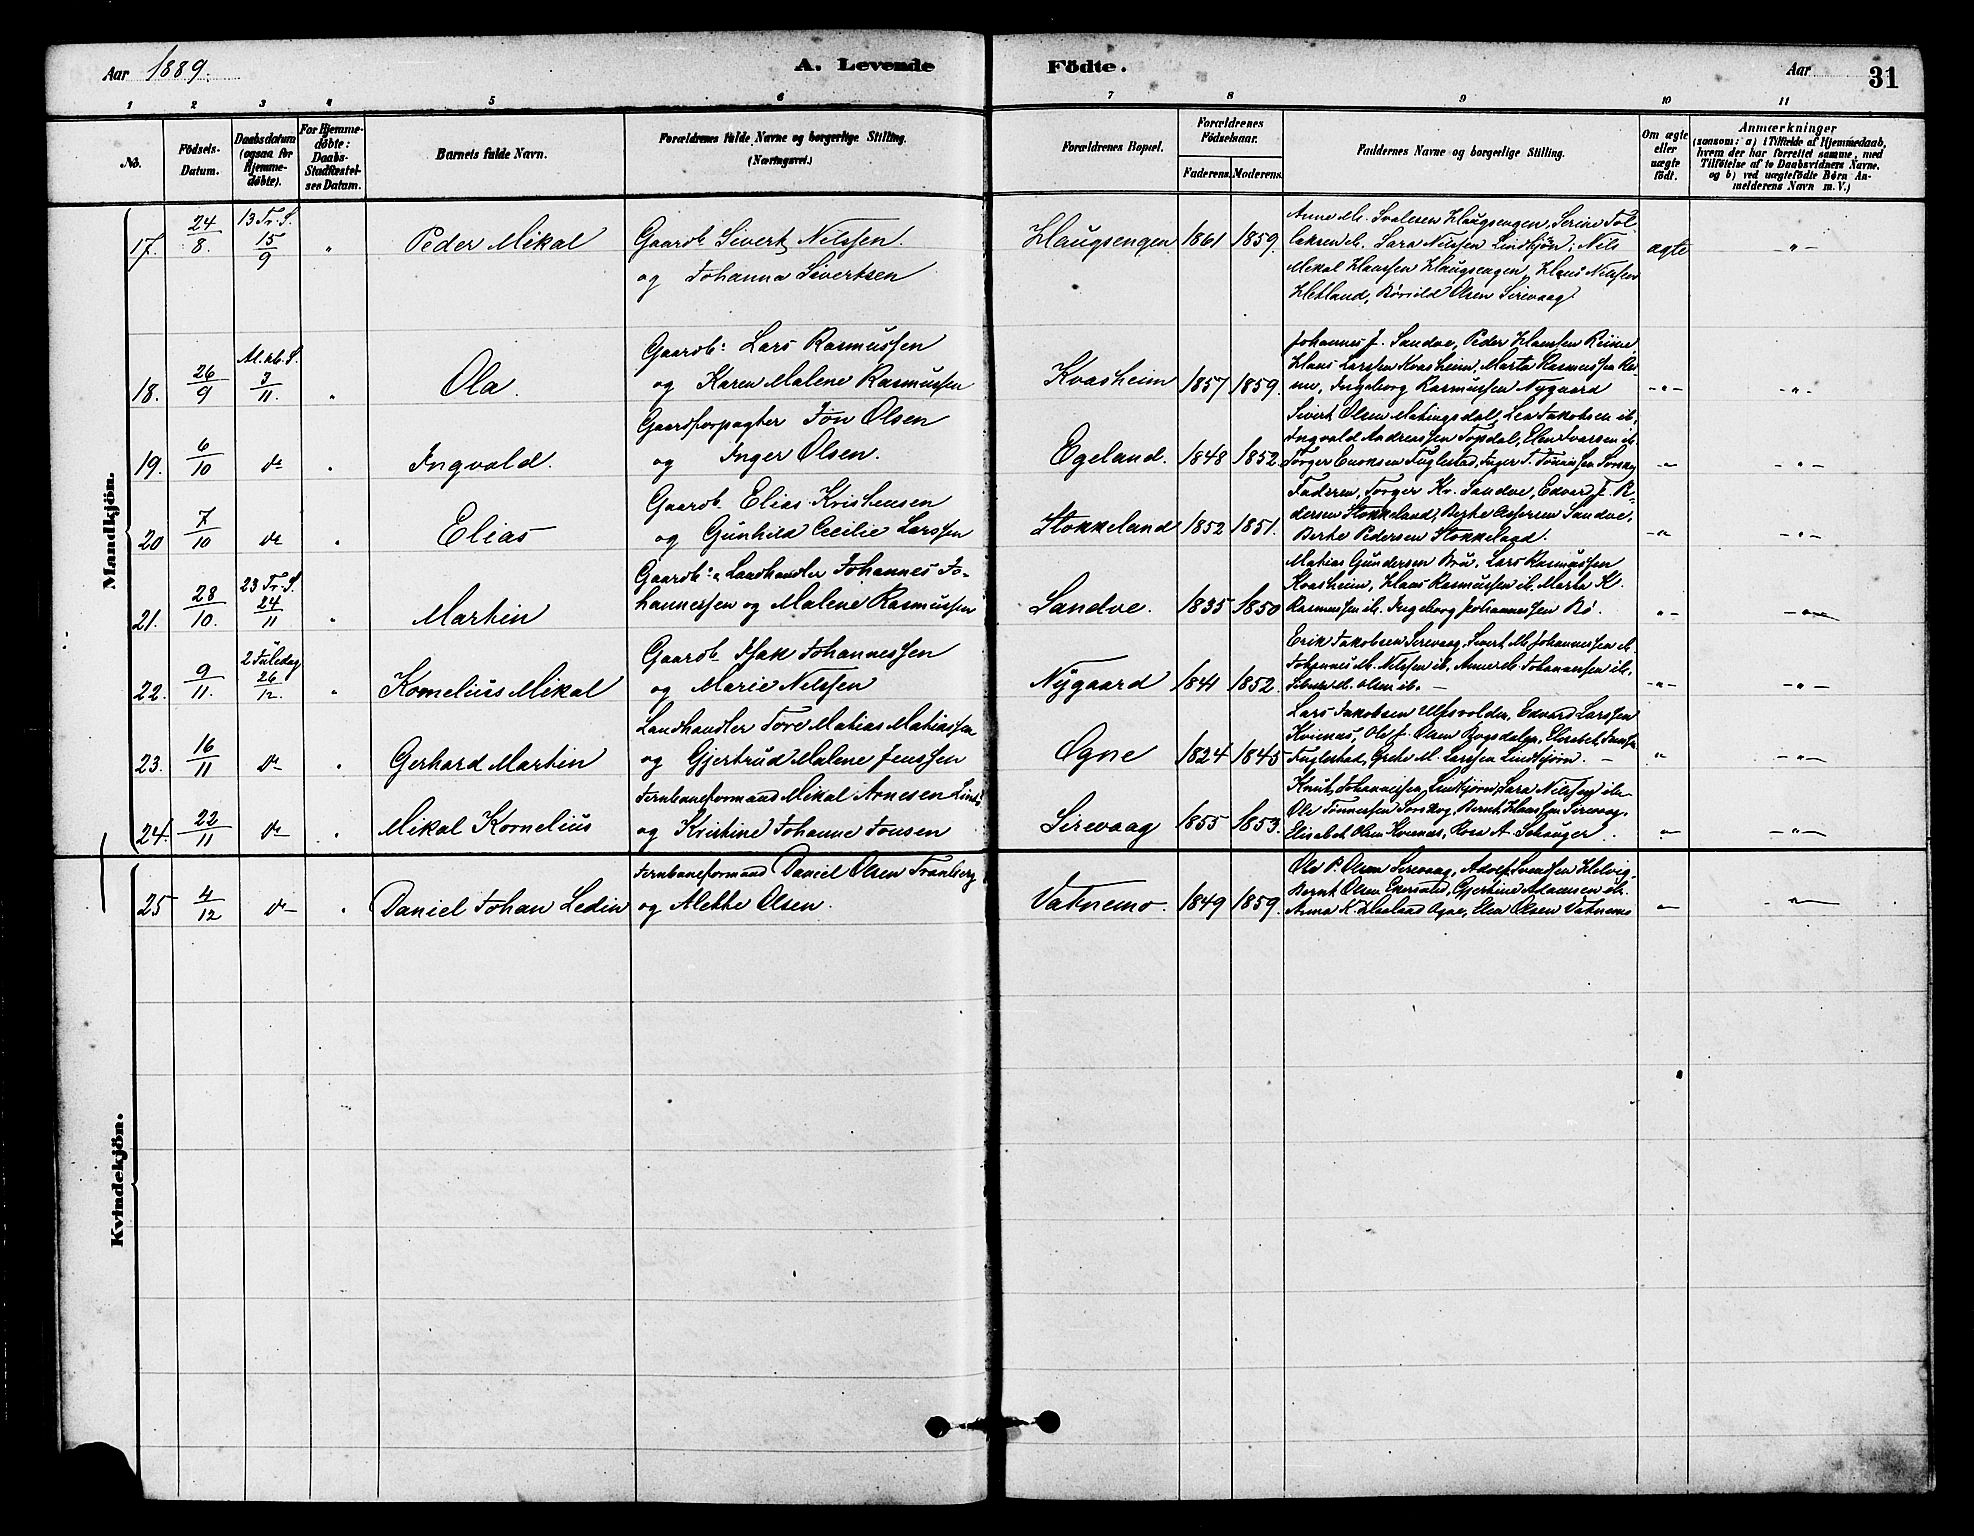 Aar 1889.
A. Levende
Födte.
Aar
31
1 2 3 4 5 6 7 8 9 10 11
No.
Födsels-
Datum.
Daabsdatum
(ogsaa for
Hjemme-
döbte).
For Hjemme-
döbte:
Daabs-
Stadfæstel-
ses Datum.
Barnets fulde Navn.
Forældrenes fulde Navne og borgerlige Stilling.
(Næringsvei.)
Forældrenes Bopæl.
Forældrenes
Födselsaar.
Faderens. Moderens.
Faddernes Navne og borgerlige Stilling.
Om ægte
eller
uægte
födt.
Anmærkninger
(saasom: a) i Tilfælde af Hjemmedaab,
hvem der har forrettet samme, med
Tilföielse af to Daabsvidners Navne,
og b) ved uægtefödte Börn An-
melderens Navn m. V.)
Mandkjön.
17. 24/8. 13 Tr. S. 15/9 " Peder Mikal
Gaardb. Sivert Nilssen
og Johanna Sivertsen
Haugsengen 1861 1859.
Anne M. Svalesen Haugsengen, Serine Tol-
laksen ib. Sara Nilssen Lindtjön, Nils
Mikal Hanssen Haugsengen, Hans Nilssen
Hetland, Olsen Sirevaag
ægte -"-
18. 26/9 Al. hb. S. 3/11. " Ola.
Gaardb. Lars Rasmussen
og Karen Malene Rasmussen
Kvasheim 1857 1859.
Johannes J. Sandve, Peder Hanssen Reime
Hans Larssen Kvasheim, Marta Rasmussen Rei-
me, Ingeborg Rasmussen Nygaard
-"- "-
19. 6/10 do " Ingvald.
Gaardforpagter Jon Olsen
og Inger Olsen.
Egeland. 1848 1852.
Sivert Olsen Matingsdal, Lea Jakobsen ib.
Ingvald Andreassen Topdal, Elen Ivarsen ib.
Torger Eriksen Fuglestad, Inger T. Tönnessen
-"- -"-
20 7/10 do " Elias
Gaardb. Elias Kristensen
og Gunhild Cecilie Larssen
Stokkeland 1852 1851.
Faderen, Torger Kr. Sandve, Edvard T. P-
dersen Stokkeland, Berte Sandve,
Berte Pedersen Stokkeland.
-"- -"-
21. 28/10. 23 Tr. S. 24/11 " Martin
Gaardb. & Landhandler Johannes Jo-
hannessen og Malene Rasmussen
Sandve. 1835 1850
Matias Gundersen Bru, Lars Rasmussen
Kvasheim, Hans Rasmussen ib. Marta K.
Rasmussen ib. Ingeborg Johannessen Bö.
"- -"-
22. 9/11. 2 Juledag 26/12. " Kornelius Mikal
Gaardb. Isak Johannessen
og Marie Nilssen
Nygaard 1841 1852.
Erik Jakobsen Sirevaag, Sivert M. Johannessen ib.
Johannes M. Nilssen ib. Anne M. Johannessen ib.
M. Olsen ib. –
-"- -"-
23. 16/11 do " Gerhard Martin
Landhandler Tore Matias Matiassen
og Gjertrud Malene Jenssen
Ogne 1824 1845
Lars Jakobsen Ulfsvolder, Edvard Larssen
Kvienæs, Ole J. Olsen Elisabet
Fuglestad, Grete M. Larssen Lindtjörn. –
" -"-
24. 22/11 do " Mikal Kornelius
Jernbaneformand Mikal Arnesen
og Kristine Johanne Jonsen
Sirevaag 1855 1853.
Knut Johannessen Lintjörn, Sara Nilssen ib.
Ole Tönnessen Bernt Hanssen Sirevaag,
Elisabet Olsen Kvienæs, A.
" -"-
Kvindekjön.
25 4/12 do " Daniel Johan Ledin
Jernbaneformand Daniel Olsen Tranberg
og Alette Olsen.
Vatnemo. 1849 1859.
Ole P. Olsen Sirevaag, Adolf Svendsen Helvig
Bernt Olsen Egersund, Gjertine Adamsen ib.
Anna K. Haaland Ogne, Elen Olsen Vatnemo
" -"-